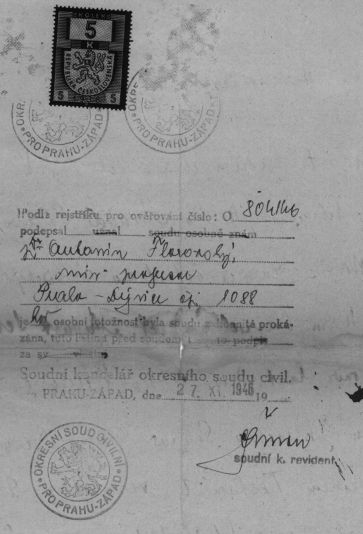 KOLEK
5
K
REPUBLIKA ČESKOSLOVENSKÁ
5 5
OKR.
PRO PRAHU-ZÁPAD
OKRESNÍ
PRO PRAHU-ZÁPAD
Podle rejstříku pro ověřování číslo: O 804/46
podepsal uznal soudu osobně znám
Dr Antonín Florovský,
univ. profesor
Praha – Dejvice čp. 1088
jehož osobní totožnost byla soudu prokázána
zána, tuto listinu před soudem podpis
za svůj vlastní
Soudní kancelář okresního soudu civil.
PRAHU-ZÁPAD, dne 27. XI. 1946 19
soudní k. revident
OKRESNÍ SOUD CIVILNÍ
PRO PRAHU-ZÁPAD